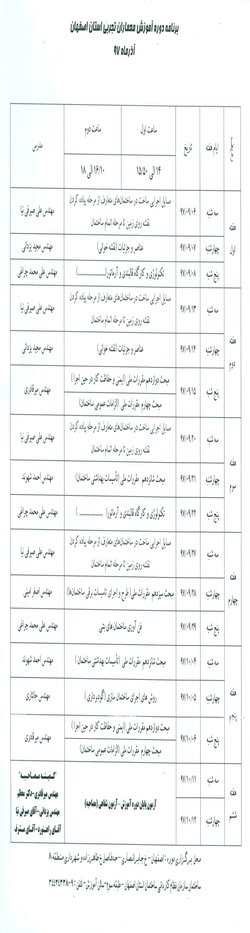 برنامه دوره آموزش معماران تجربی استان اصفهان
آذرماه ۹۷
ایام هفته
تاریخ
ساعت اول
ساعت دوم
مدرس
۱۴ الی ۱۵/۵۰
۱۶/۱۰ الی ۱۸
هفته اول
سه شنبه
۹۷/۰۹/۰۶
مسایل اجرایی ساخت در ساختمان‌های متعارف از مرحله پیاده کردن
نقشه روی زمین تا مرحله اتمام ساختمان
مهندس علی صیرفی نیا
چهارشنبه
۹۷/۰۹/۰۷
عناصر و جزئیات (نقشه خوانی)
مهندس مجید یزدانی
پنج شنبه
۹۷/۰۹/۰۸
تکنولوژی و کارگاه قالبندی و آرماتور (...............)
مهندس علی محمد چراغی
هفته دوم
سه شنبه
۹۷/۰۹/۱۳
مسایل اجرایی ساخت در ساختمان‌های متعارف از مرحله پیاده کردن
نقشه روی زمین تا مرحله اتمام ساختمان
مهندس علی صیرفی نیا
چهارشنبه
۹۷/۰۹/۱۴
عناصر و جزئیات (نقشه خوانی)
مهندس مجید یزدانی
پنج شنبه
۹۷/۰۹/۱۵
مبحث دوازدهم مقررات ملی (ایمنی و حفاظت کار در حین اجرا)
مبحث چهارم مقررات ملی (الزامات عمومی ساختمان)
مهندس میرقادری
هفته سوم
سه شنبه
۹۷/۰۹/۲۰
مسایل اجرایی ساخت در ساختمان‌های متعارف از مرحله پیاده کردن
نقشه روی زمین تا مرحله اتمام ساختمان
مهندس علی صیرفی نیا
چهارشنبه
۹۷/۰۹/۲۱
مبحث شانزدهم مقررات ملی (تأسیسات بهداشتی ساختمان)
مهندس احمد شهوند
پنج شنبه
۹۷/۰۹/۲۲
تکنولوژی و کارگاه قالبندی و آرماتور (...............)
مهندس علی محمد چراغی
هفته چهارم
سه شنبه
۹۷/۰۹/۲۷
مسایل اجرایی ساخت در ساختمان‌های متعارف از مرحله پیاده کردن
نقشه روی زمین تا مرحله اتمام ساختمان
مهندس علی صیرفی نیا
چهارشنبه
۹۷/۰۹/۲۸
مبحث سیزدهم مقررات ملی (طرح و اجرای تاسیسات برقی ساختمان‌ها)
مهندس اصغر امینی
پنج شنبه
۹۷/۰۹/۲۹
فن آوری ساختمان های بتنی
مهندس علی محمد چراغی
هفته پنجم
سه شنبه
۹۷/۱۰/۰۴
مبحث شانزدهم مقررات ملی (تأسیسات بهداشتی ساختمان)
مهندس احمد شهوند
چهارشنبه
۹۷/۱۰/۰۵
روش های اجرای ساختمان سازی (گودبرداری)
پنج شنبه
۹۷/۱۰/۰۶
مبحث دوازدهم مقررات ملی (ایمنی و حفاظت کار در حین اجرا)
مبحث چهارم مقررات ملی (الزامات عمومی ساختمان)
مهندس میرقادری
هفته ششم
سه شنبه
۹۷/۱۰/۱۱
چهارشنبه
۹۷/۱۰/۱۲
آزمون پایان دوره آموزش - آزمون شفاهی (مصاحبه)
کمیته مصاحبه:
مهندس میرقادری - دکتر معظم
مهندس یزدانی - آقای صیرفی نیا
محل برگزاری دوره: اصفهان - خ جابر انصاری - شهرداری منطقه ۸
سازمان نظام کاردانی ساختمان استان اصفهان - طبقه سوم - سالن آموزش - تلفن: